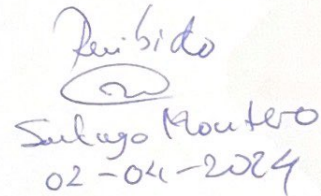 Recibido
Santiago Montero
02-04-2024